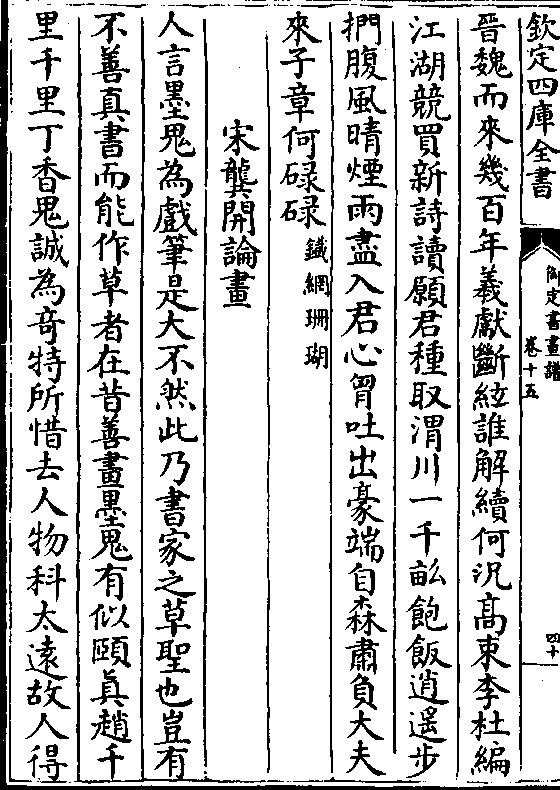 欽定四庫全書
御定書畫譜
卷十五
四十
晉魏而來幾百年羲獻斷絃誰解續何况髙束李杜編
江湖競買新詩讀願君種取渭川一千畝飽飯逍遙步
捫腹風晴煙雨盡入君心胷吐出豪端自森肅負大夫
來子章何碌碌鐵網珊瑚
宋龔開論畫
人言墨鬼為戲筆是大不然此乃書家之草聖也豈有
不善真書而能作草者在昔善畫墨鬼有似頤真趙千
里千里丁香鬼誠為竒特所惜去人物科太遠故人得